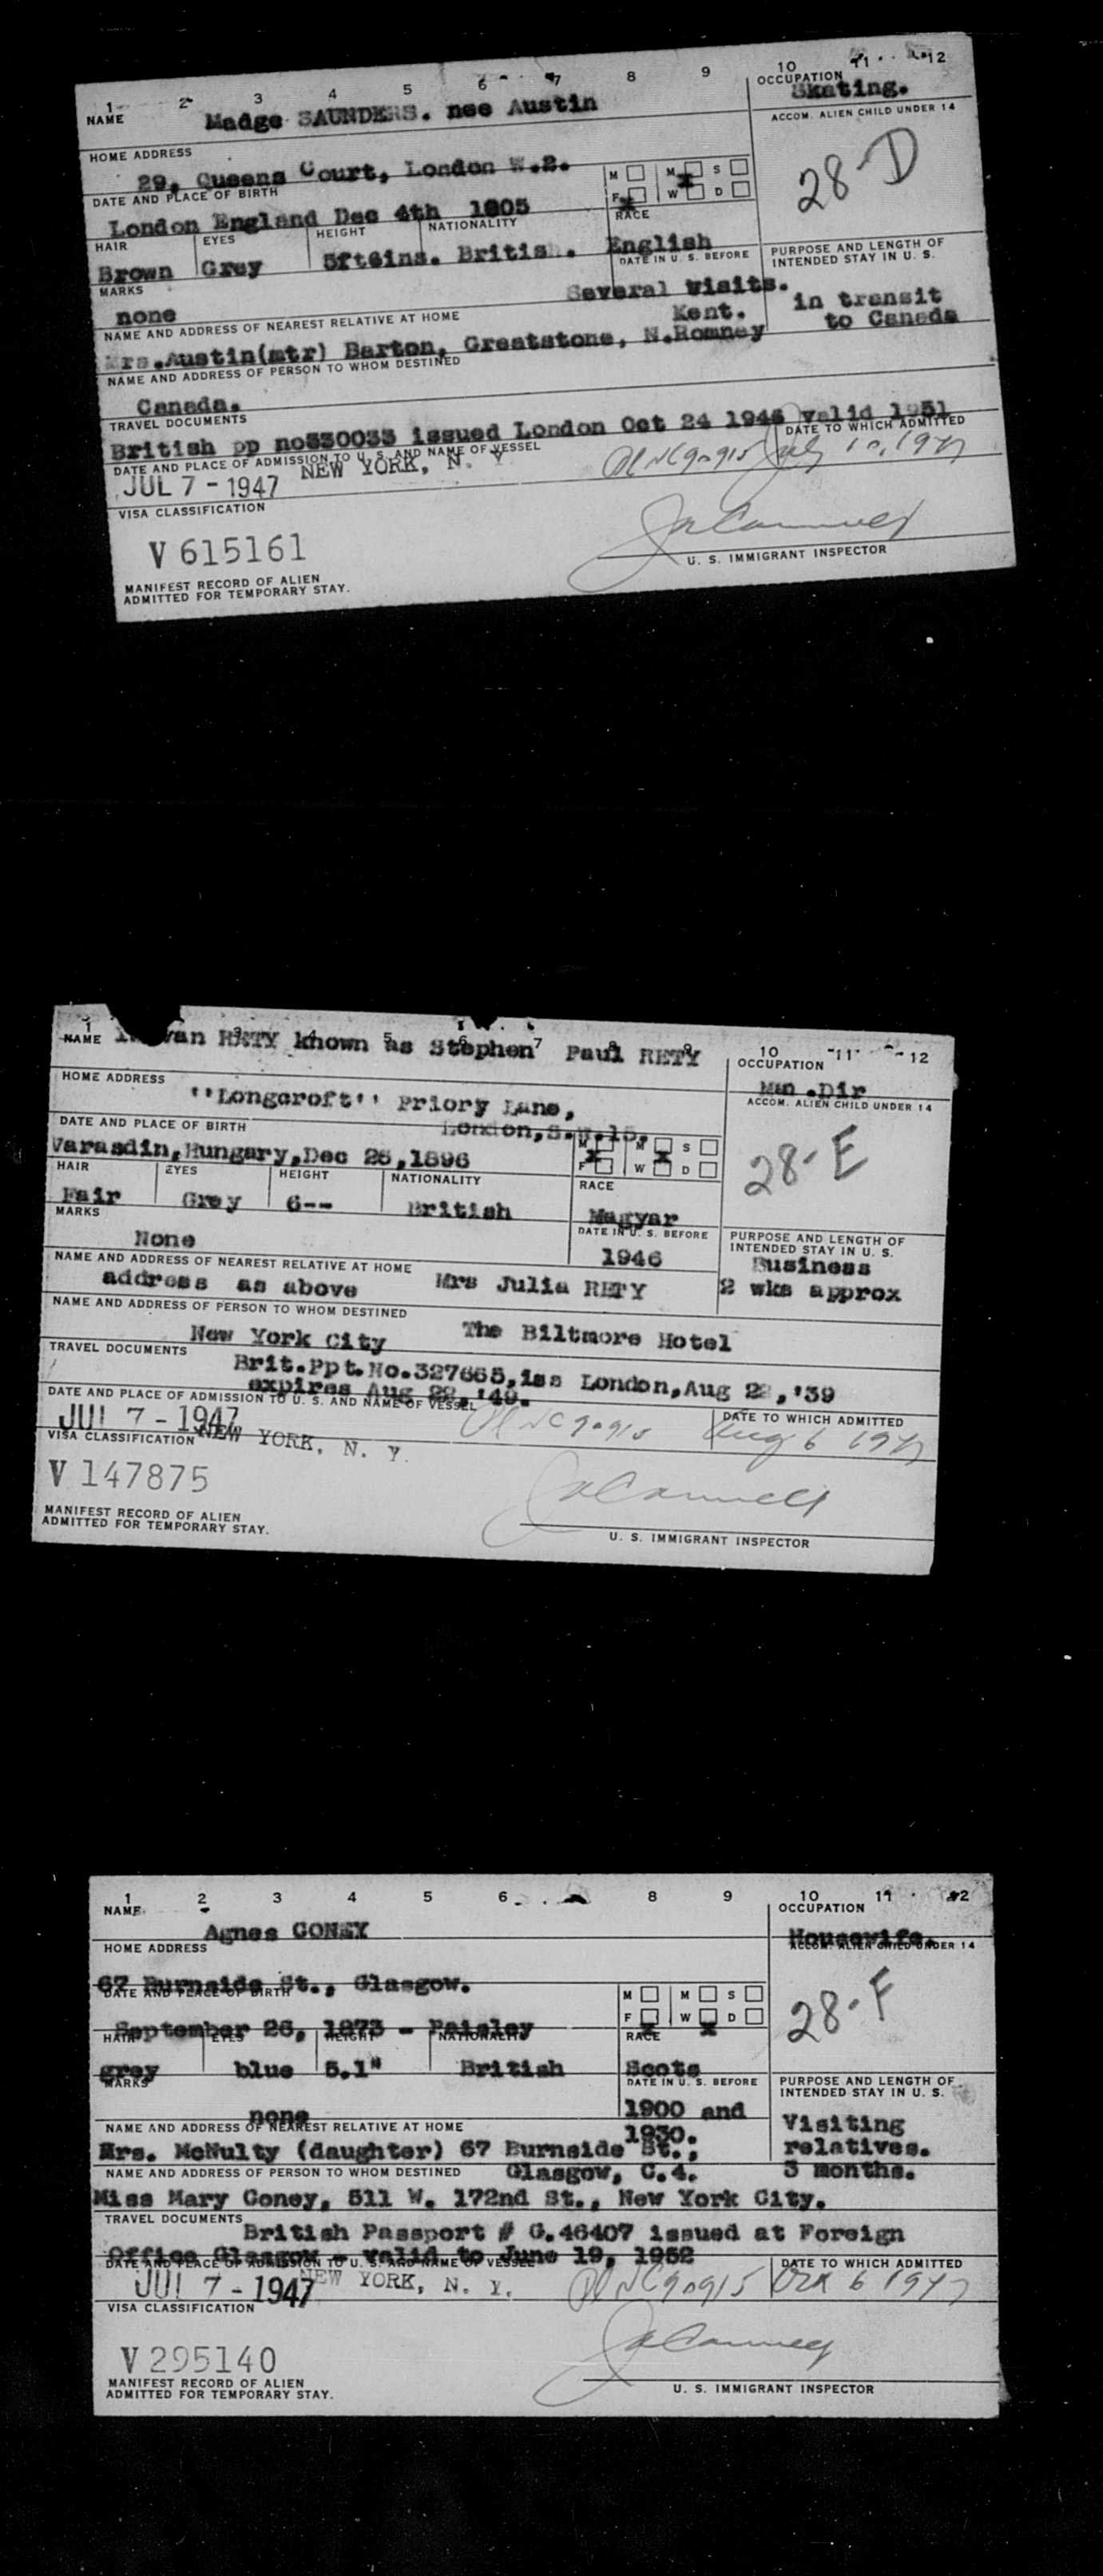 1 2 3 4 5 6 7 8 9 10 11 12
NAME Madge SAUNDERS. nee Austin
OCCUPATION Skating.
ACCOM. ALIEN CHILD UNDER 14
28-D
HOME ADDRESS
29, Queens Court, London W.2.
DATE AND PLACE OF BIRTH
M M S
F W D
London England Dec 4th 1905
RACE
HAIR EYES HEIGHT NATIONALITY
English
Brown Grey 5ft6ins. British.
DATE IN U. S. BEFORE
PURPOSE AND LENGTH OF
INTENDED STAY IN U. S.
MARKS
none
Several visits.
in transit
to Canada
NAME AND ADDRESS OF NEAREST RELATIVE AT HOME
Kent.
Mrs.Austin(mtr) Barton, Greatstone, N.Romney
NAME AND ADDRESS OF PERSON TO WHOM DESTINED
Canada.
TRAVEL DOCUMENTS
British pp no330033 issued London Oct 24 1946 valid 1951
DATE AND PLACE OF ADMISSION TO U. S. AND NAME OF VESSEL
DATE TO WHICH ADMITTED
JUL 7 - 1947 NEW YORK, N. Y.
July 10, 1947
VISA CLASSIFICATION
V 615161
U. S. IMMIGRANT INSPECTOR
MANIFEST RECORD OF ALIEN
ADMITTED FOR TEMPORARY STAY.
1 3 4 5 6 7 8 9 10 11 12
NAME RETY known as Stephen Paul RETY
OCCUPATION
Man.Dir
ACCOM. ALIEN CHILD UNDER 14
28-E
HOME ADDRESS
''Longcroft'' Priory Lane,
London,S.W.15.
DATE AND PLACE OF BIRTH
M M S
F W D
Varasdin,Hungary,Dec 25,1896
HAIR EYES HEIGHT NATIONALITY
RACE
Fair Grey 6-- British
Magyar
MARKS
None
DATE IN U. S. BEFORE
1946
PURPOSE AND LENGTH OF
INTENDED STAY IN U. S.
Business
2 wks approx
NAME AND ADDRESS OF NEAREST RELATIVE AT HOME
address as above Mrs Julia RETY
NAME AND ADDRESS OF PERSON TO WHOM DESTINED
New York City The Biltmore Hotel
TRAVEL DOCUMENTS
Brit.Ppt.No.327665,iss London,Aug 22,'39
expires Aug 22,'49.
DATE AND PLACE OF ADMISSION TO U. S. AND NAME OF VESSEL
DATE TO WHICH ADMITTED
JUL 7 - 1947 NEW YORK, N. Y.
Aug 6 1947
VISA CLASSIFICATION
V 147875
MANIFEST RECORD OF ALIEN
ADMITTED FOR TEMPORARY STAY.
U. S. IMMIGRANT INSPECTOR
1 2 3 4 5 6 8 9 10 11 12
NAME
OCCUPATION
Agnes CONEY
Housewife.
HOME ADDRESS
ACCOM. ALIEN CHILD UNDER 14
28-F
67 Burnside St., Glasgow.
DATE AND PLACE OF BIRTH
M M S
F W D
September 26, 1873 - Paisley
HAIR EYES HEIGHT NATIONALITY
RACE
grey blue 5.1" British
Scots
MARKS
DATE IN U. S. BEFORE
PURPOSE AND LENGTH OF
INTENDED STAY IN U. S.
none
1900 and
1930.
Visiting
relatives.
3 months.
NAME AND ADDRESS OF NEAREST RELATIVE AT HOME
Mrs. McNulty (daughter) 67 Burnside St.,
Glasgow, C.4.
NAME AND ADDRESS OF PERSON TO WHOM DESTINED
Miss Mary Coney, 511 W. 172nd St., New York City.
TRAVEL DOCUMENTS
British Passport # G.46407 issued at Foreign
Office Glasgow - valid to June 19, 1952
DATE AND PLACE OF ADMISSION TO U. S. AND NAME OF VESSEL
DATE TO WHICH ADMITTED
JUL 7 - 1947 NEW YORK, N. Y.
Oct 6 1947
VISA CLASSIFICATION
V 295140
MANIFEST RECORD OF ALIEN
ADMITTED FOR TEMPORARY STAY.
U. S. IMMIGRANT INSPECTOR